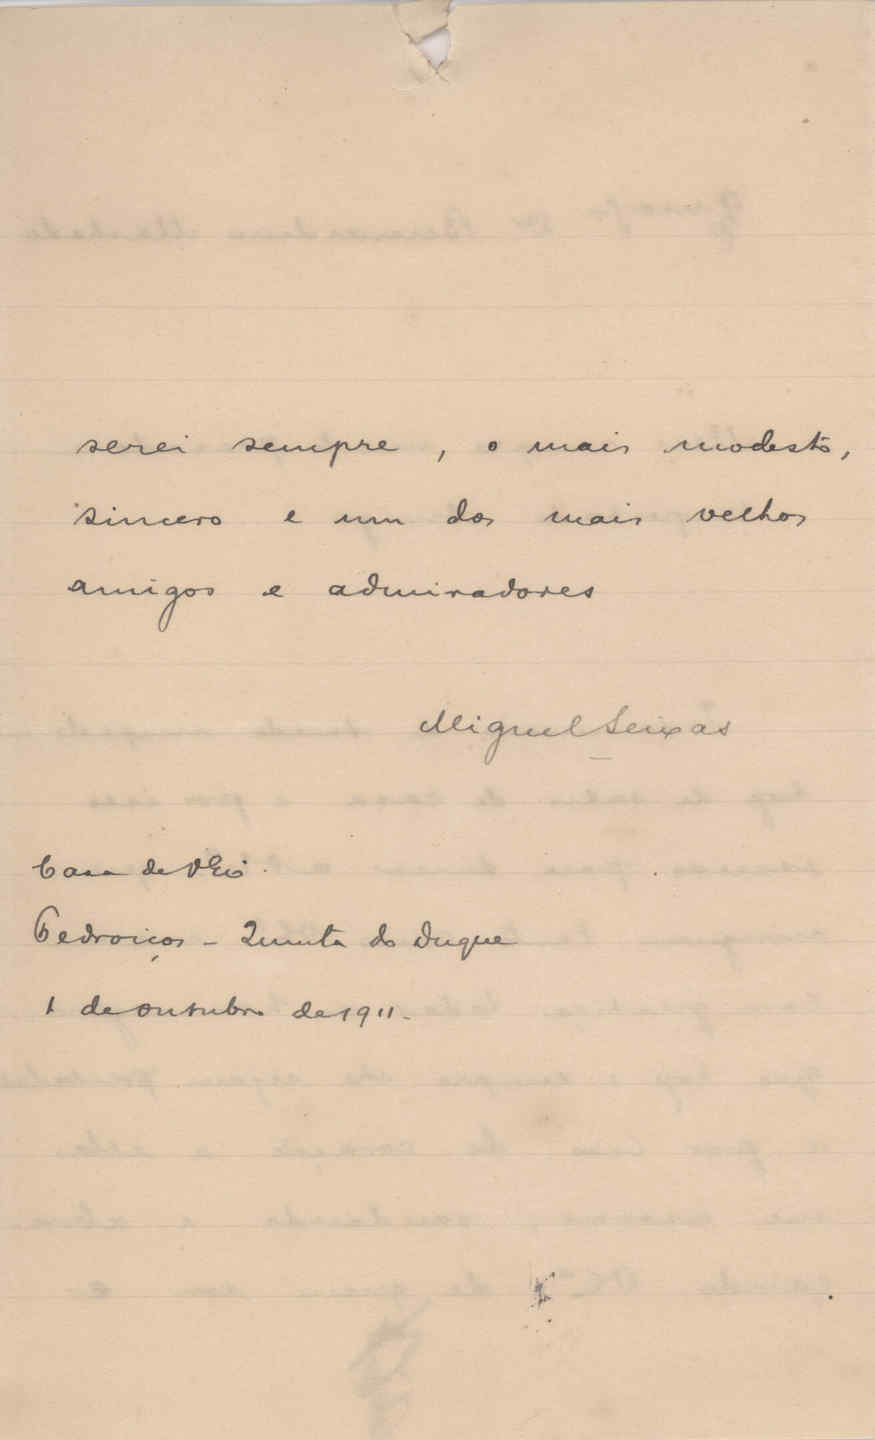 serei sempre, o mais modesto,
sincero e um dos mais velhos
amigos e admiradores
Miguel Seixas
Casa de
Pedroiços - Quinta do Duque
1 de outubro de 1911.